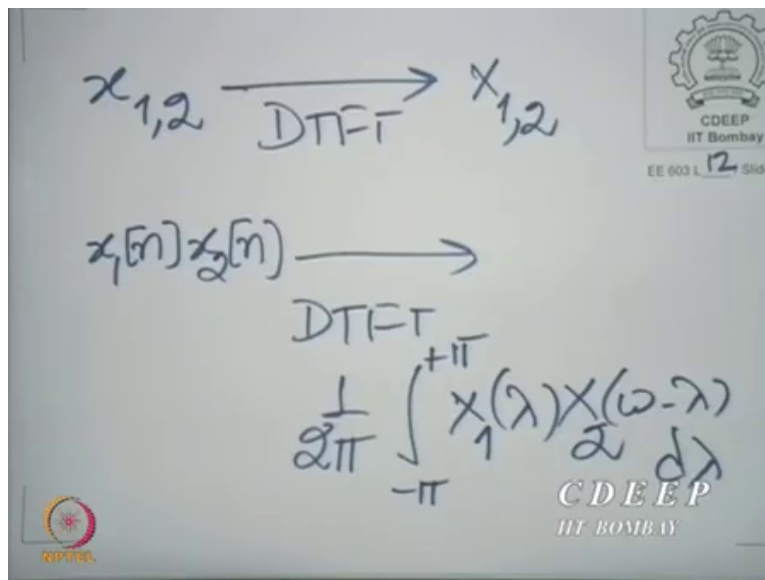 x₁,₂ ⟶ X₁,₂
DTFT
CDEEP
IIT Bombay
EE 603 L 12 / Slid
x₁[n] x₂[n] ⟶
DTFT
1/2π ∫_{-π}^{+π} X₁(λ) X₂(ω-λ) dλ
CDEEP
IIT BOMBAY
NPTEL